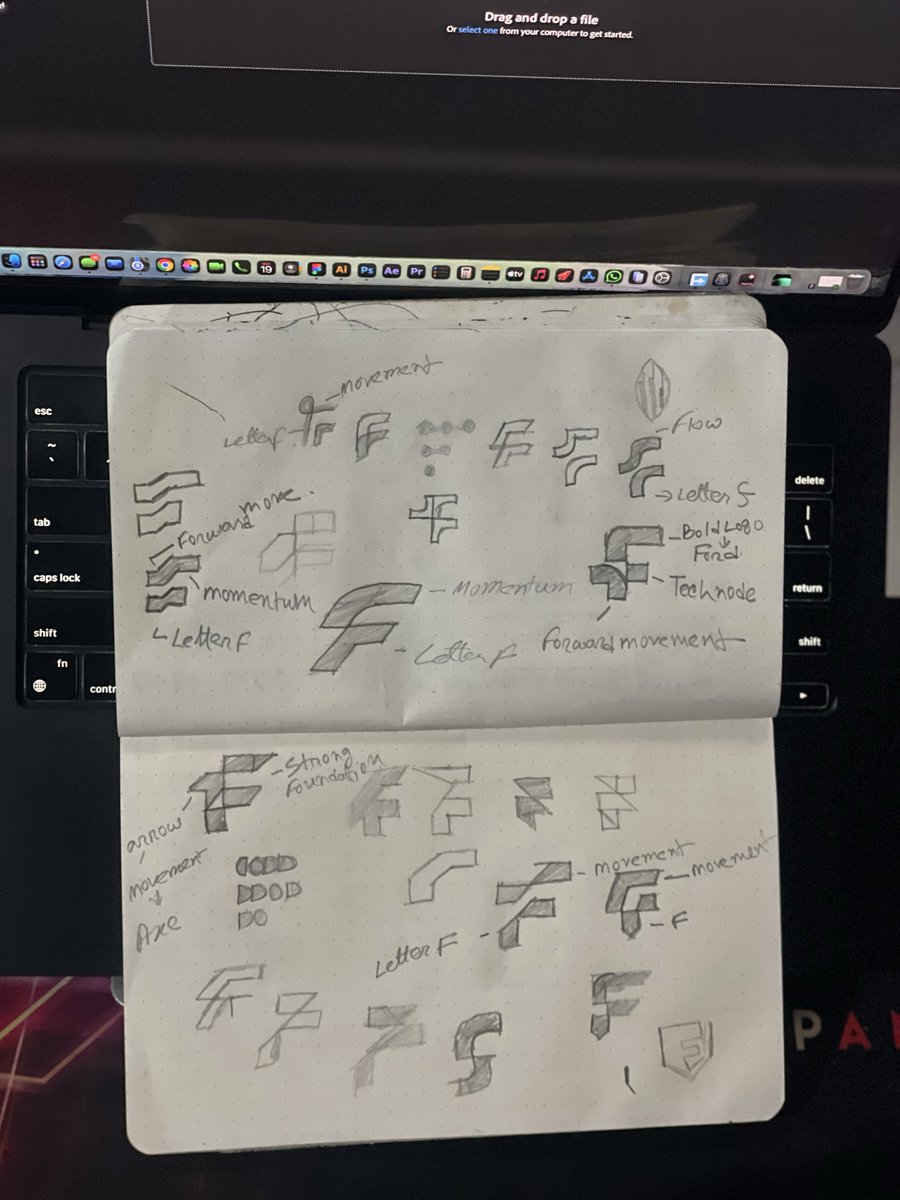 Drag and drop a file
Or select one from your computer to get started.
19
Ai
Ps
Ae
Pr
tv
esc
~
`
tab
caps lock
shift
fn
contr
delete
|
\
return
shift
movement
Letter F
Flow
Letter F
Forward move.
momentum
Letter F
Momentum
Letter F
Bold Logo
Ford
Technode
Forward movement
Strong
Foundation
arrow
movement
Axe
movement
Letter F
movement
F
PA